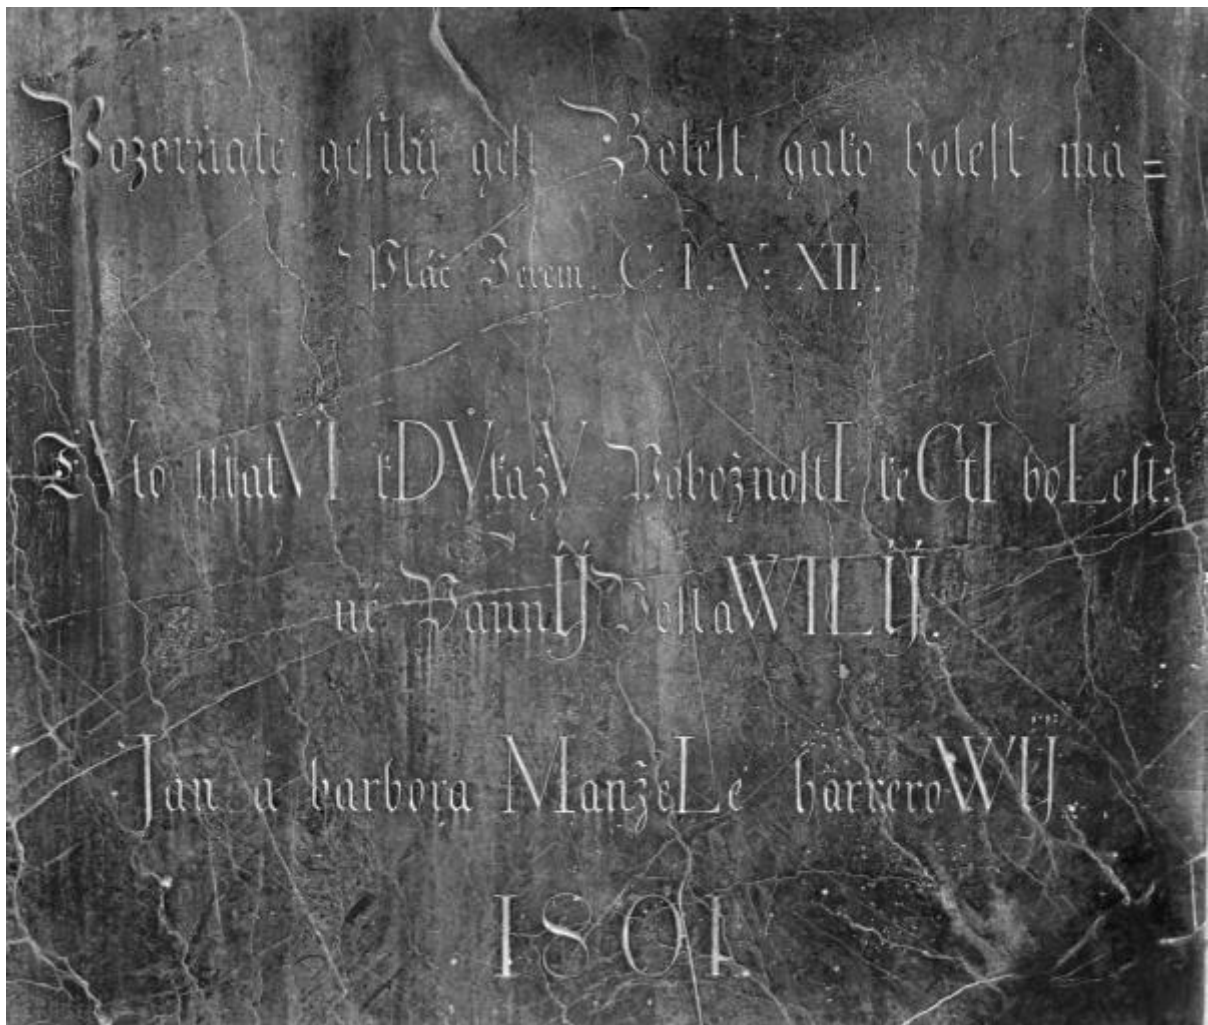 Pozerugte, gestliž gest Bolest, gako bolest má=
Pláč Jerem. C: I. V: XII.
TVto StatVI kDVkazV PobožnostI keCtI boLest:
né PannIJ PostaWILIJ.
Jan a barbora ManželLé WIJ
1801.